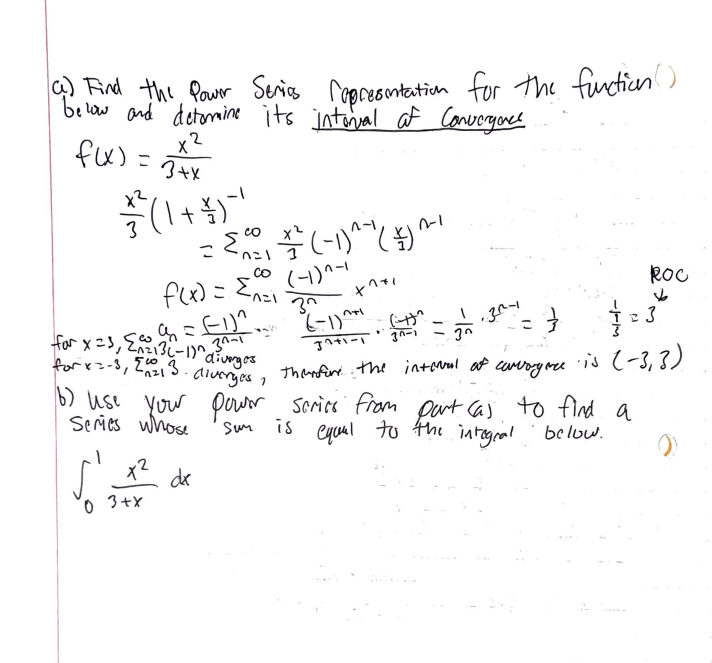 a) Find the Power Series representation for the function
below and determine its interval of convergence
f(x) = x²/(3+x)
x²/3 (1 + x/3)^-1
= Σ_{n=1}^∞ x²/3 (-1)^{n-1} (x/3)^{n-1}
f(x) = Σ_{n=1}^∞ (-1)^{n-1}/3^n x^{n+1}
ROC ↓
a_n = (-1)^n/3^{n-1} (-1)^{n+1}/3^{n+1-1} · (-1)^n/3^{n-1} = 1/3^n · 3^{n-1} = 1/3 1/(1/3) = 3
for x=3, Σ_{n=1}^∞ 3(-1)^n diverges
for x=-3, Σ_{n=1}^∞ 3. diverges, therefore the interval of convergence is (-3,3)
b) use your power series from part (a) to find a
series whose sum is equal to the integral below.
∫_0^1 x²/(3+x) dx